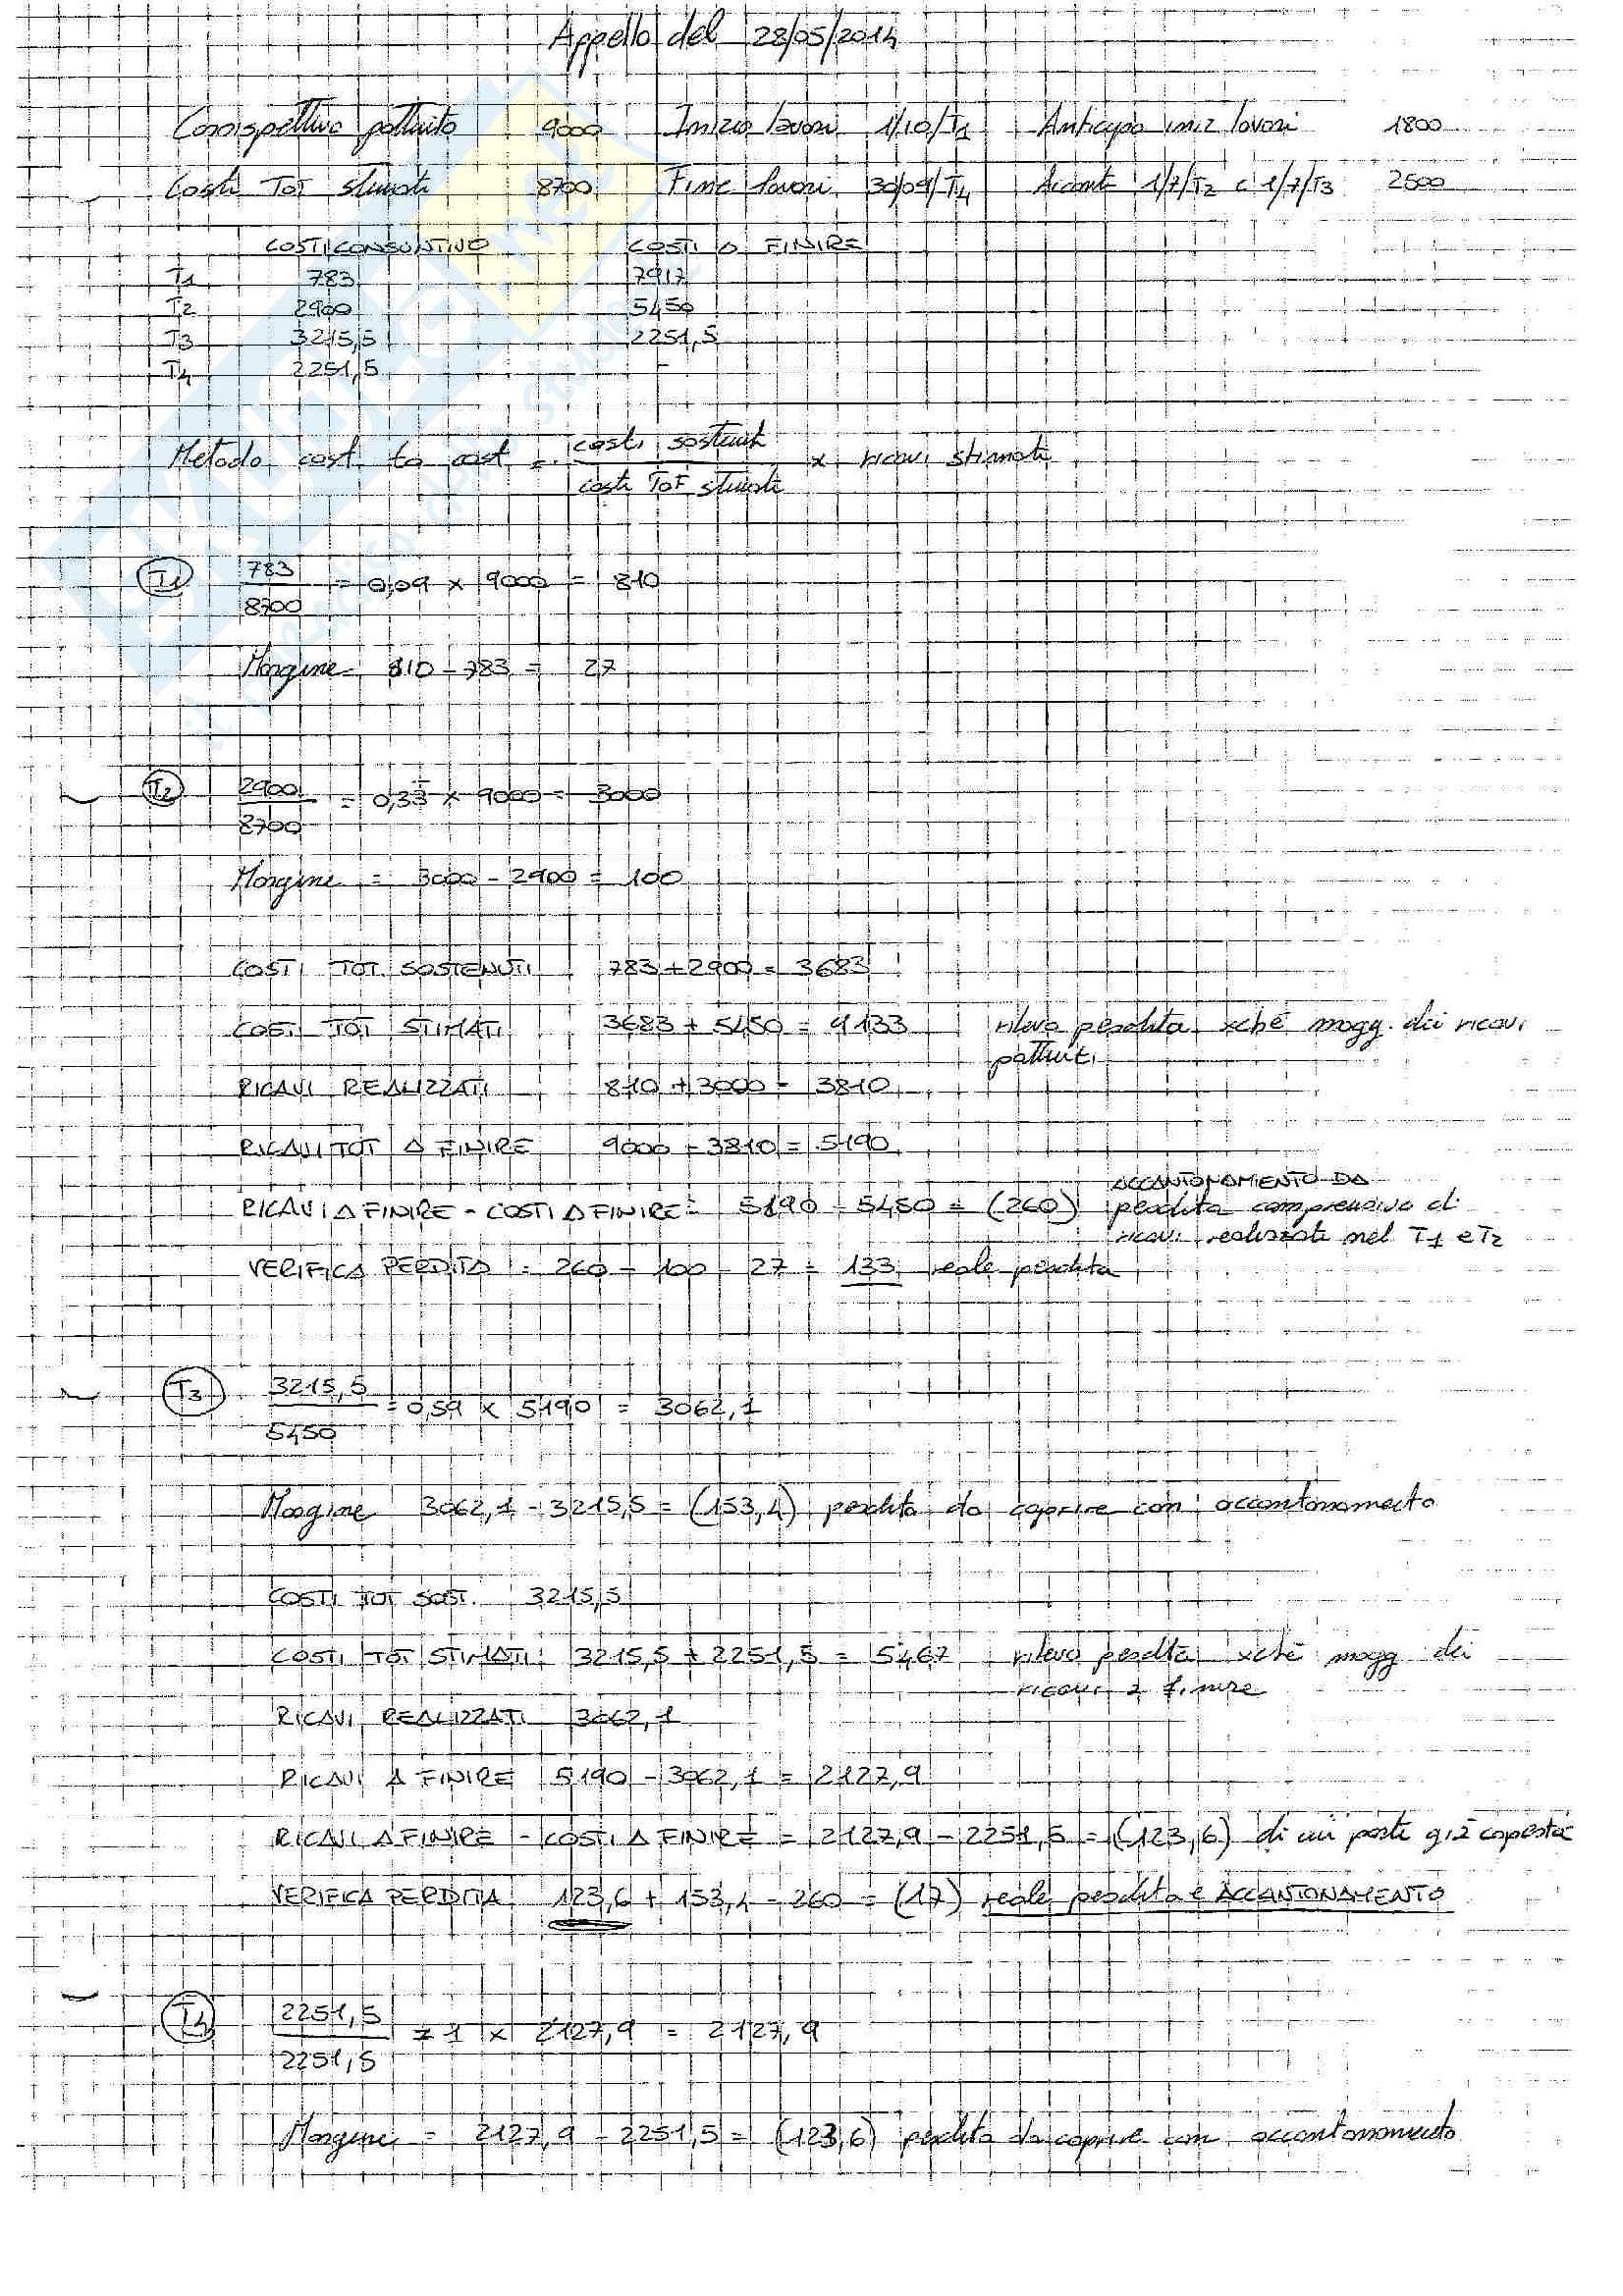 Appello del 28/05/2014
Corrispettivo pattuito 9000 Inizio lavori 1/10/T1 Anticipo iniz lavori 1800
Costi TOT stimati 8700 Fine lavori 30/09/T4 Acconti 1/7/T2 e 1/7/T3 2500
COSTI CONSUNTIVO COSTI A FINIRE
T1 783 7917
T2 2900 5450
T3 3215,5 2251,5
T4 2251,5 -
Metodo cost to cost = costi sostenuti / costi TOT stimati x ricavi stimati
T1 783 / 8700 = 0,09 x 9000 = 810
Margine 810 - 783 = 27
T2 2900 / 8700 = 0,33 x 9000 = 3000
Margine = 3000 - 2900 = 100
COSTI TOT. SOSTENUTI 783 + 2900 = 3683
COSTI TOT STIMATI 3683 + 5450 = 9133 rilevo perdita xché magg. dei ricavi
pattuiti
RICAVI REALIZZATI 810 + 3000 = 3810
RICAVI TOT A FINIRE 9000 - 3810 = 5190
ACCANTONAMENTO DA
RICAVI A FINIRE - COSTI A FINIRE = 5190 - 5450 = (260) perdita comprensivo di
ricavi realizzati nel T1 e T2
VERIFICA PERDITA = 260 - 100 - 27 = 133 reale perdita
T3 3215,5 / 5450 = 0,59 x 5190 = 3062,1
Margine 3062,1 - 3215,5 = (153,4) perdita da coprire con accantonamento
COSTI TOT SOST. 3215,5
COSTI TOT STIMATI 3215,5 + 2251,5 = 5467 rilevo perdita xché magg dei
ricavi a finire
RICAVI REALIZZATI 3062,1
RICAVI A FINIRE 5190 - 3062,1 = 2127,9
RICAVI A FINIRE - COSTI A FINIRE = 2127,9 - 2251,5 = (123,6) di cui parte già coperta
VERIFICA PERDITA 123,6 + 153,4 - 260 = (17) reale perdita e ACCANTONAMENTO
T4 2251,5 / 2251,5 = 1 x 2127,9 = 2127,9
Margine = 2127,9 - 2251,5 = (123,6) perdita da coprire con accantonamento